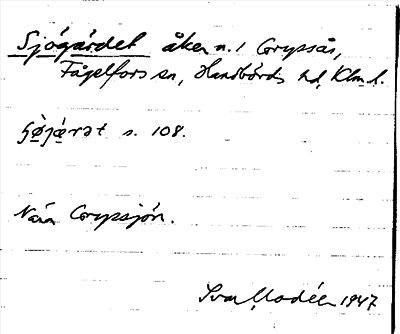 Sjögärdet åker n. i Grypsås,
Fågelfors sn, Handbörds hd, Klm. l.
s. 108.
Nära Grypsjön.
Ivar Modéer 1947